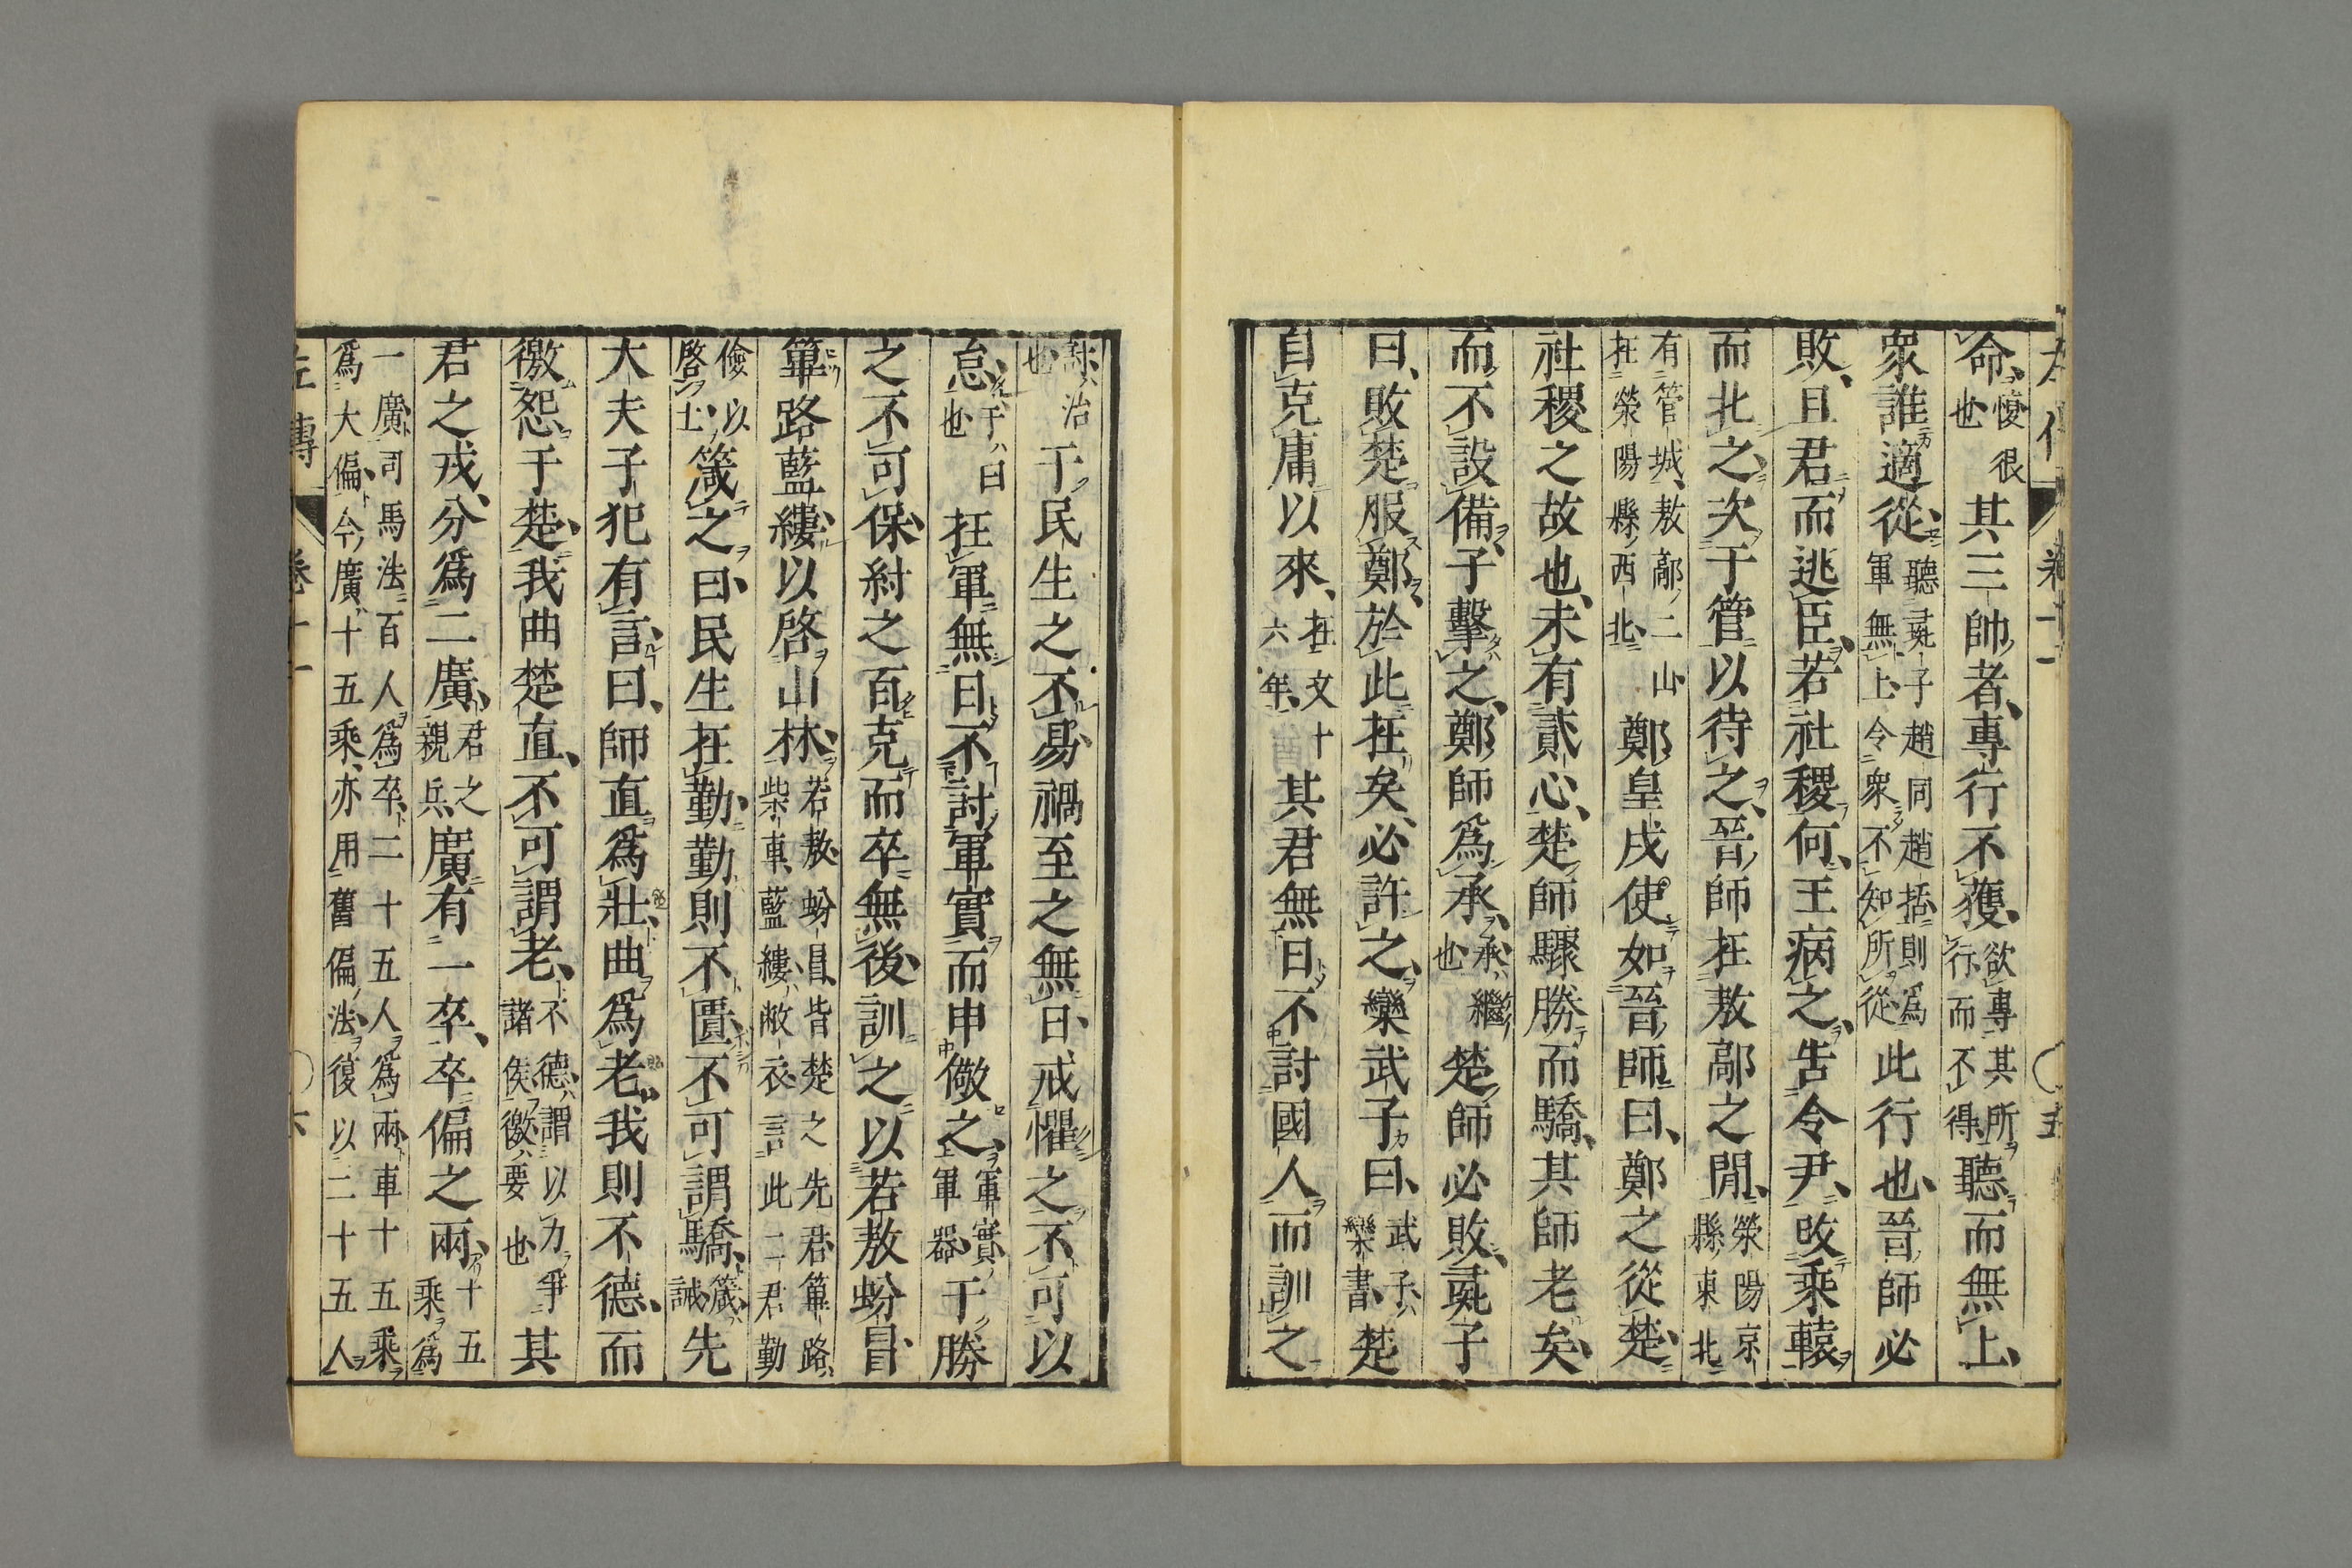 左傳 卷十一 〇五
命愎很也其三帥者專行不獲欲專其所行而不得聽而無上
衆誰適從聽彘子趙同趙括則爲軍無上令衆不知所從此行也晉師必
敗且君而逃臣若社稷何王病之告令尹改乘轅
而北之次于管以待之晉師在敖鄗之閒滎陽京縣東北
有管城敖鄗二山在滎陽縣西北鄭皇戌使如晉師曰鄭之從楚
社稷之故也未有貳心楚師驟勝而驕其師老矣
而不設備子擊之鄭師爲承承繼也楚師必敗彘子
曰敗楚服鄭於此在矣必許之欒武子曰武子欒書楚
自克庸以來在文十六年其君無日不討國人而訓之
討治也于民生之不易禍至之無日戒懼之不可以
怠于曰也在軍無日不討軍實而申儆之軍實軍器于勝
之不可保紂之百克而卒無後訓之以若敖蚡冒
篳路藍縷以啓山林若敖蚡冒皆楚之先君篳路柴車藍縷敝衣言此二君勤
儉以啓土箴之曰民生在勤勤則不匱不可謂驕箴誡先
大夫子犯有言曰師直爲壯曲爲老我則不德而
徼怨于楚我曲楚直不可謂老不德謂以力爭諸侯徼要也其
君之戎分爲二廣君之親兵廣有一卒卒偏之兩十五乘爲
一廣司馬法百人爲卒二十五人爲兩車十五乘爲大偏今廣十五乘亦用舊偏法復以二十五人
左傳 卷十一 〇六